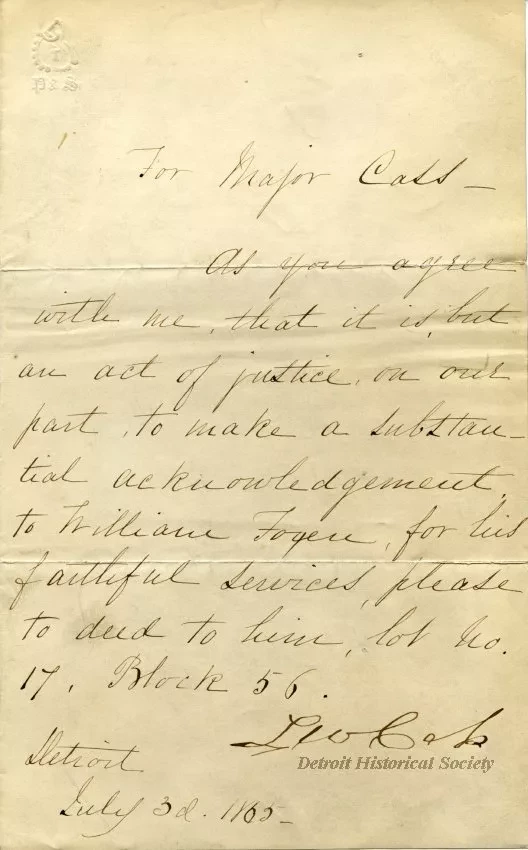 For Major Cass -
As you agree
with me, that it is but
an act of justice, on our
part, to make a substan-
tial acknowledgement,
to William Foyen, for his
faithful services, please
to deed to him, lot No.
17, Block 56.
Lew Cass
Detroit
July 3d. 1865-
Detroit Historical Society